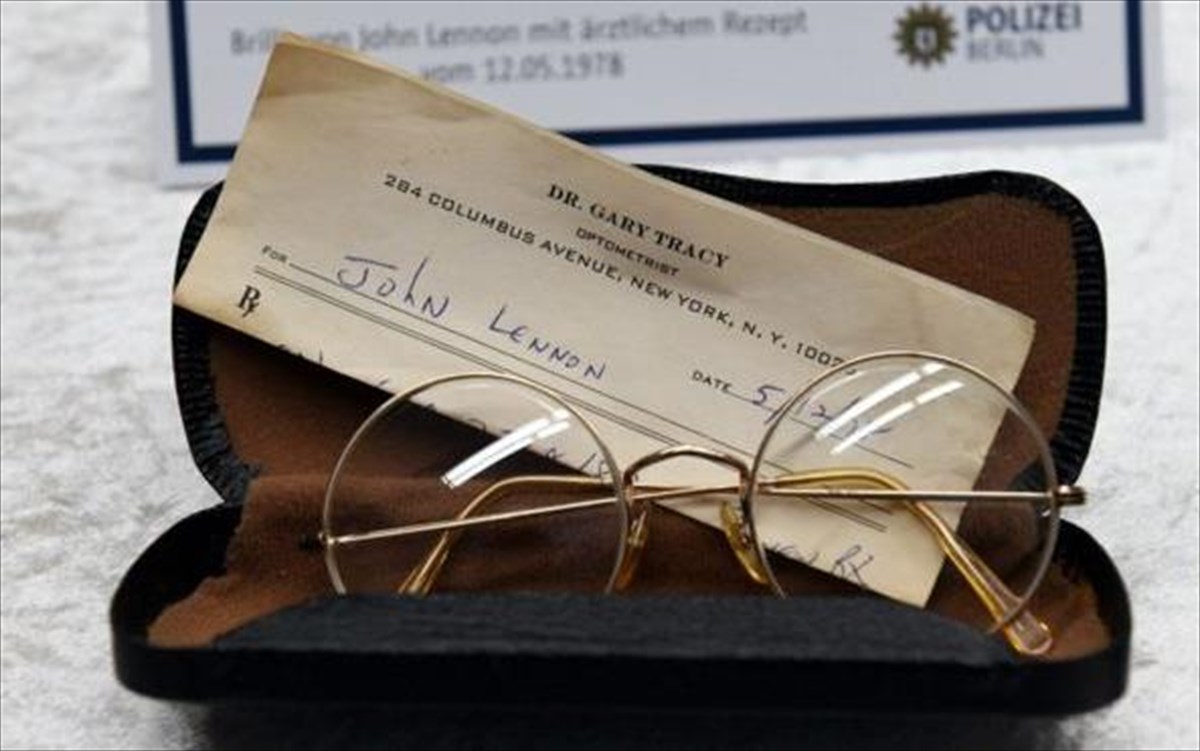 von John Lennon mit ärztlichem Rezept
vom 12.05.1978
POLIZEI
BERLIN
DR. GARY TRACY
OPTOMETRIST
284 COLUMBUS AVENUE, NEW YORK, N. Y.
FOR John LENNON
DATE 5/12/
Rx